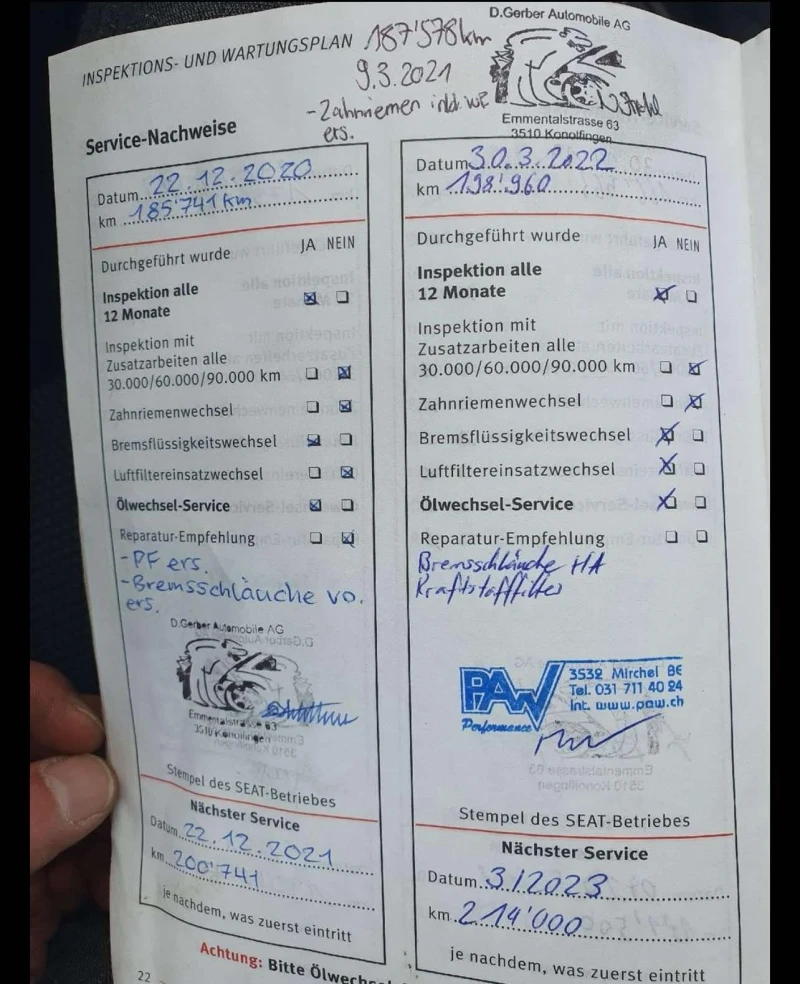 INSPEKTIONS- UND WARTUNGSPLAN
187'578km
9.3.2021
-Zahnriemen inkl. WP
ers.
D.Gerber Automobile AG
Emmentalstrasse 63
3510 Konolfingen
Service-Nachweise
Datum 22.12.2020
km 185'741 km
Durchgeführt wurde JA NEIN
Inspektion alle
12 Monate
Inspektion mit
Zusatzarbeiten alle
30.000/60.000/90.000 km
Zahnriemenwechsel
Bremsflüssigkeitswechsel
Luftfiltereinsatzwechsel
Ölwechsel-Service
Reparatur-Empfehlung
-PF ers.
-Bremsschläuche vo.
ers.
D.Gerber Automobile AG
Emmentalstrasse 63
3510 Konolfingen
Stempel des SEAT-Betriebes
Nächster Service
Datum 22.12.2021
km 200'741
je nachdem, was zuerst eintritt
Datum 30.3.2022
km 198'960
Durchgeführt wurde JA NEIN
Inspektion alle
12 Monate
Inspektion mit
Zusatzarbeiten alle
30.000/60.000/90.000 km
Zahnriemenwechsel
Bremsflüssigkeitswechsel
Luftfiltereinsatzwechsel
Ölwechsel-Service
Reparatur-Empfehlung
Bremsschläuche HA
Kraftstofffilter
PAW
Performance
3532 Mirchel BE
Tel. 031 711 40 24
Int. www.paw.ch
Stempel des SEAT-Betriebes
Nächster Service
Datum 3/2023
km 214'000
je nachdem, was zuerst eintritt
Achtung: Bitte
22